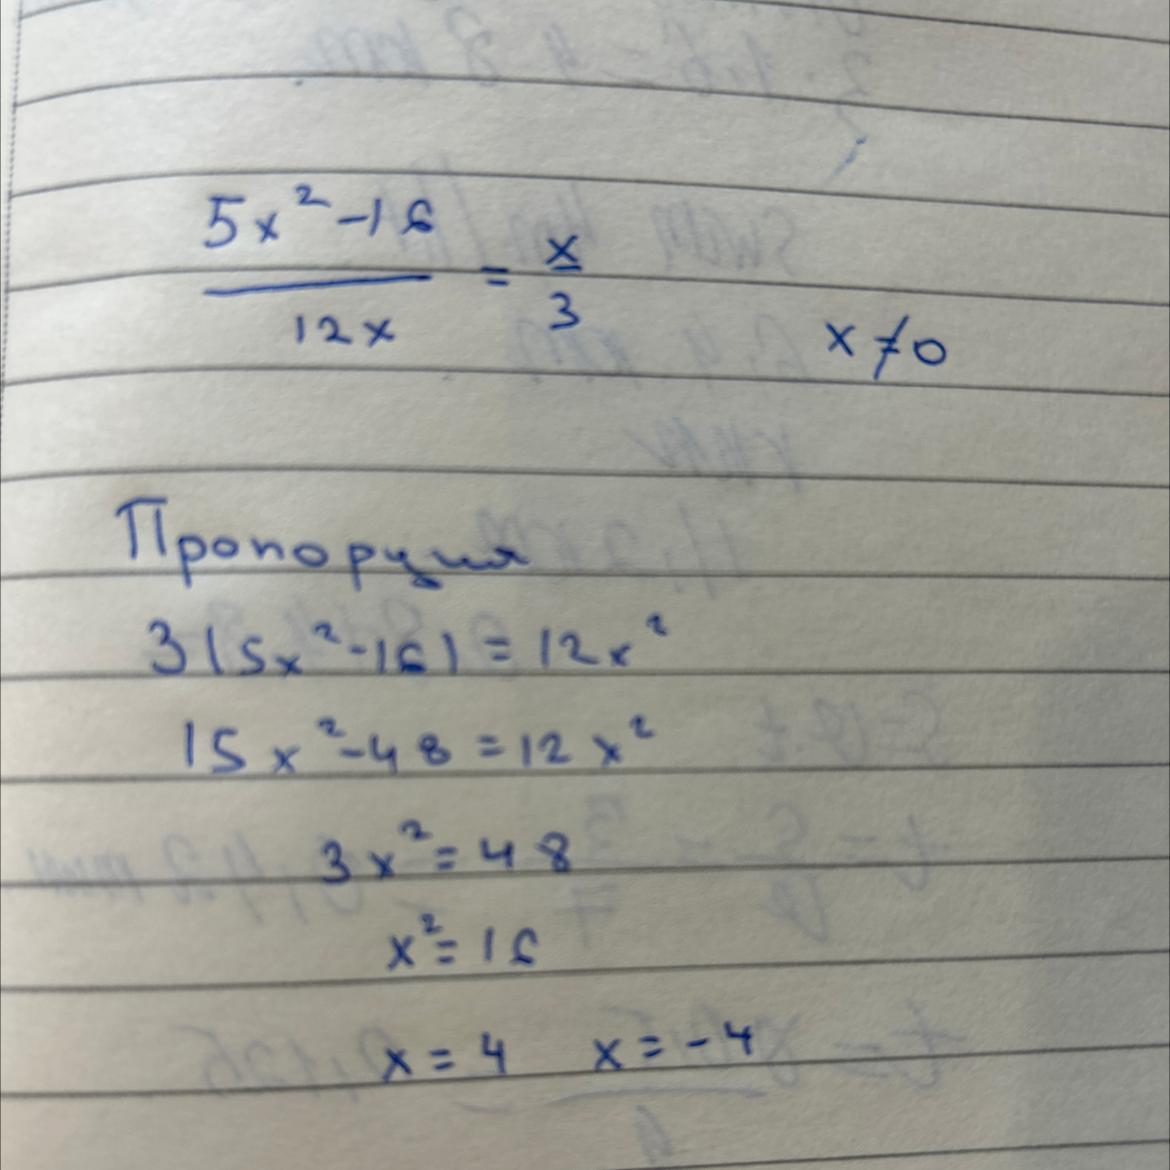 5x² - 16 / 12x = x / 3    x ≠ 0
Пропорция
3(5x² - 16) = 12x²
15x² - 48 = 12x²
3x² = 48
x² = 16
x = 4    x = -4